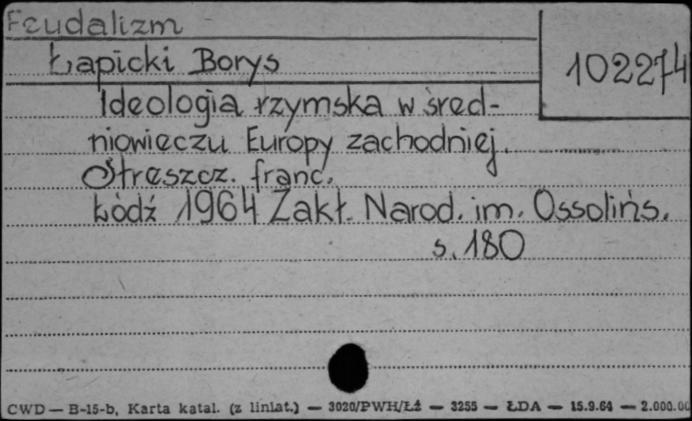 Feudalizm
Łapicki Borys
102274
Ideologia rzymska w śred-
niowieczu Europy zachodniej.
Streszcz. franc.
Łódź 1964 Zakł. Narod. im. Ossolińs.
s. 180
CWD — B-15-b, Karta katal. (z liniat.) — 3020/PWH/Łź — 3255 — ŁDA — 15.9.64 — 2.000.00